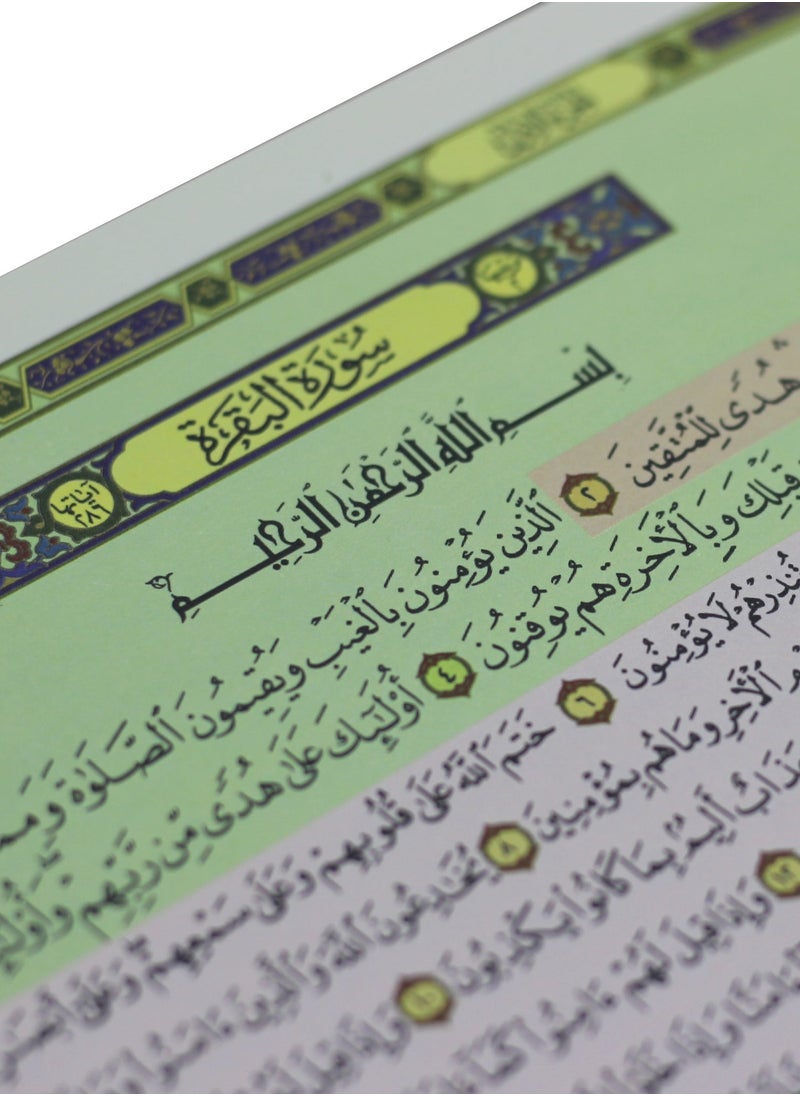 سُورَةُ البَقَرَةِ
آيَاتُهَا ٢٨٦
بِسْمِ اللَّهِ الرَّحْمَٰنِ الرَّحِيمِ
هُدًى لِّلْمُتَّقِينَ ٢ ٱلَّذِينَ يُؤْمِنُونَ بِٱلْغَيْبِ وَيُقِيمُونَ ٱلصَّلَوٰةَ
قَبْلِكَ وَبِٱلْأَخِرَةِ هُمْ يُوقِنُونَ ٤ أُو۟لَٰٓئِكَ عَلَىٰ هُدًى مِّن رَّبِّهِمْ
تُنذِرْهُمْ لَا يُؤْمِنُونَ ٦ خَتَمَ ٱللَّهُ عَلَىٰ قُلُوبِهِمْ وَعَلَىٰ سَمْعِهِمْ وَعَلَىٰ
ٱلْأَخِرِ وَمَا هُم بِمُؤْمِنِينَ ٨ يُخَٰدِعُونَ ٱللَّهَ وَٱلَّذِينَ ءَامَنُوا۟
عَذَابٌ أَلِيمٌۢ بِمَا كَانُوا۟ يَكْذِبُونَ ١٠ وَإِذَا قِيلَ
١٢ وَإِذَا قِيلَ لَهُمْ ءَامِنُوا۟ كَمَآ
ءَامَنَّا وَإِذَا